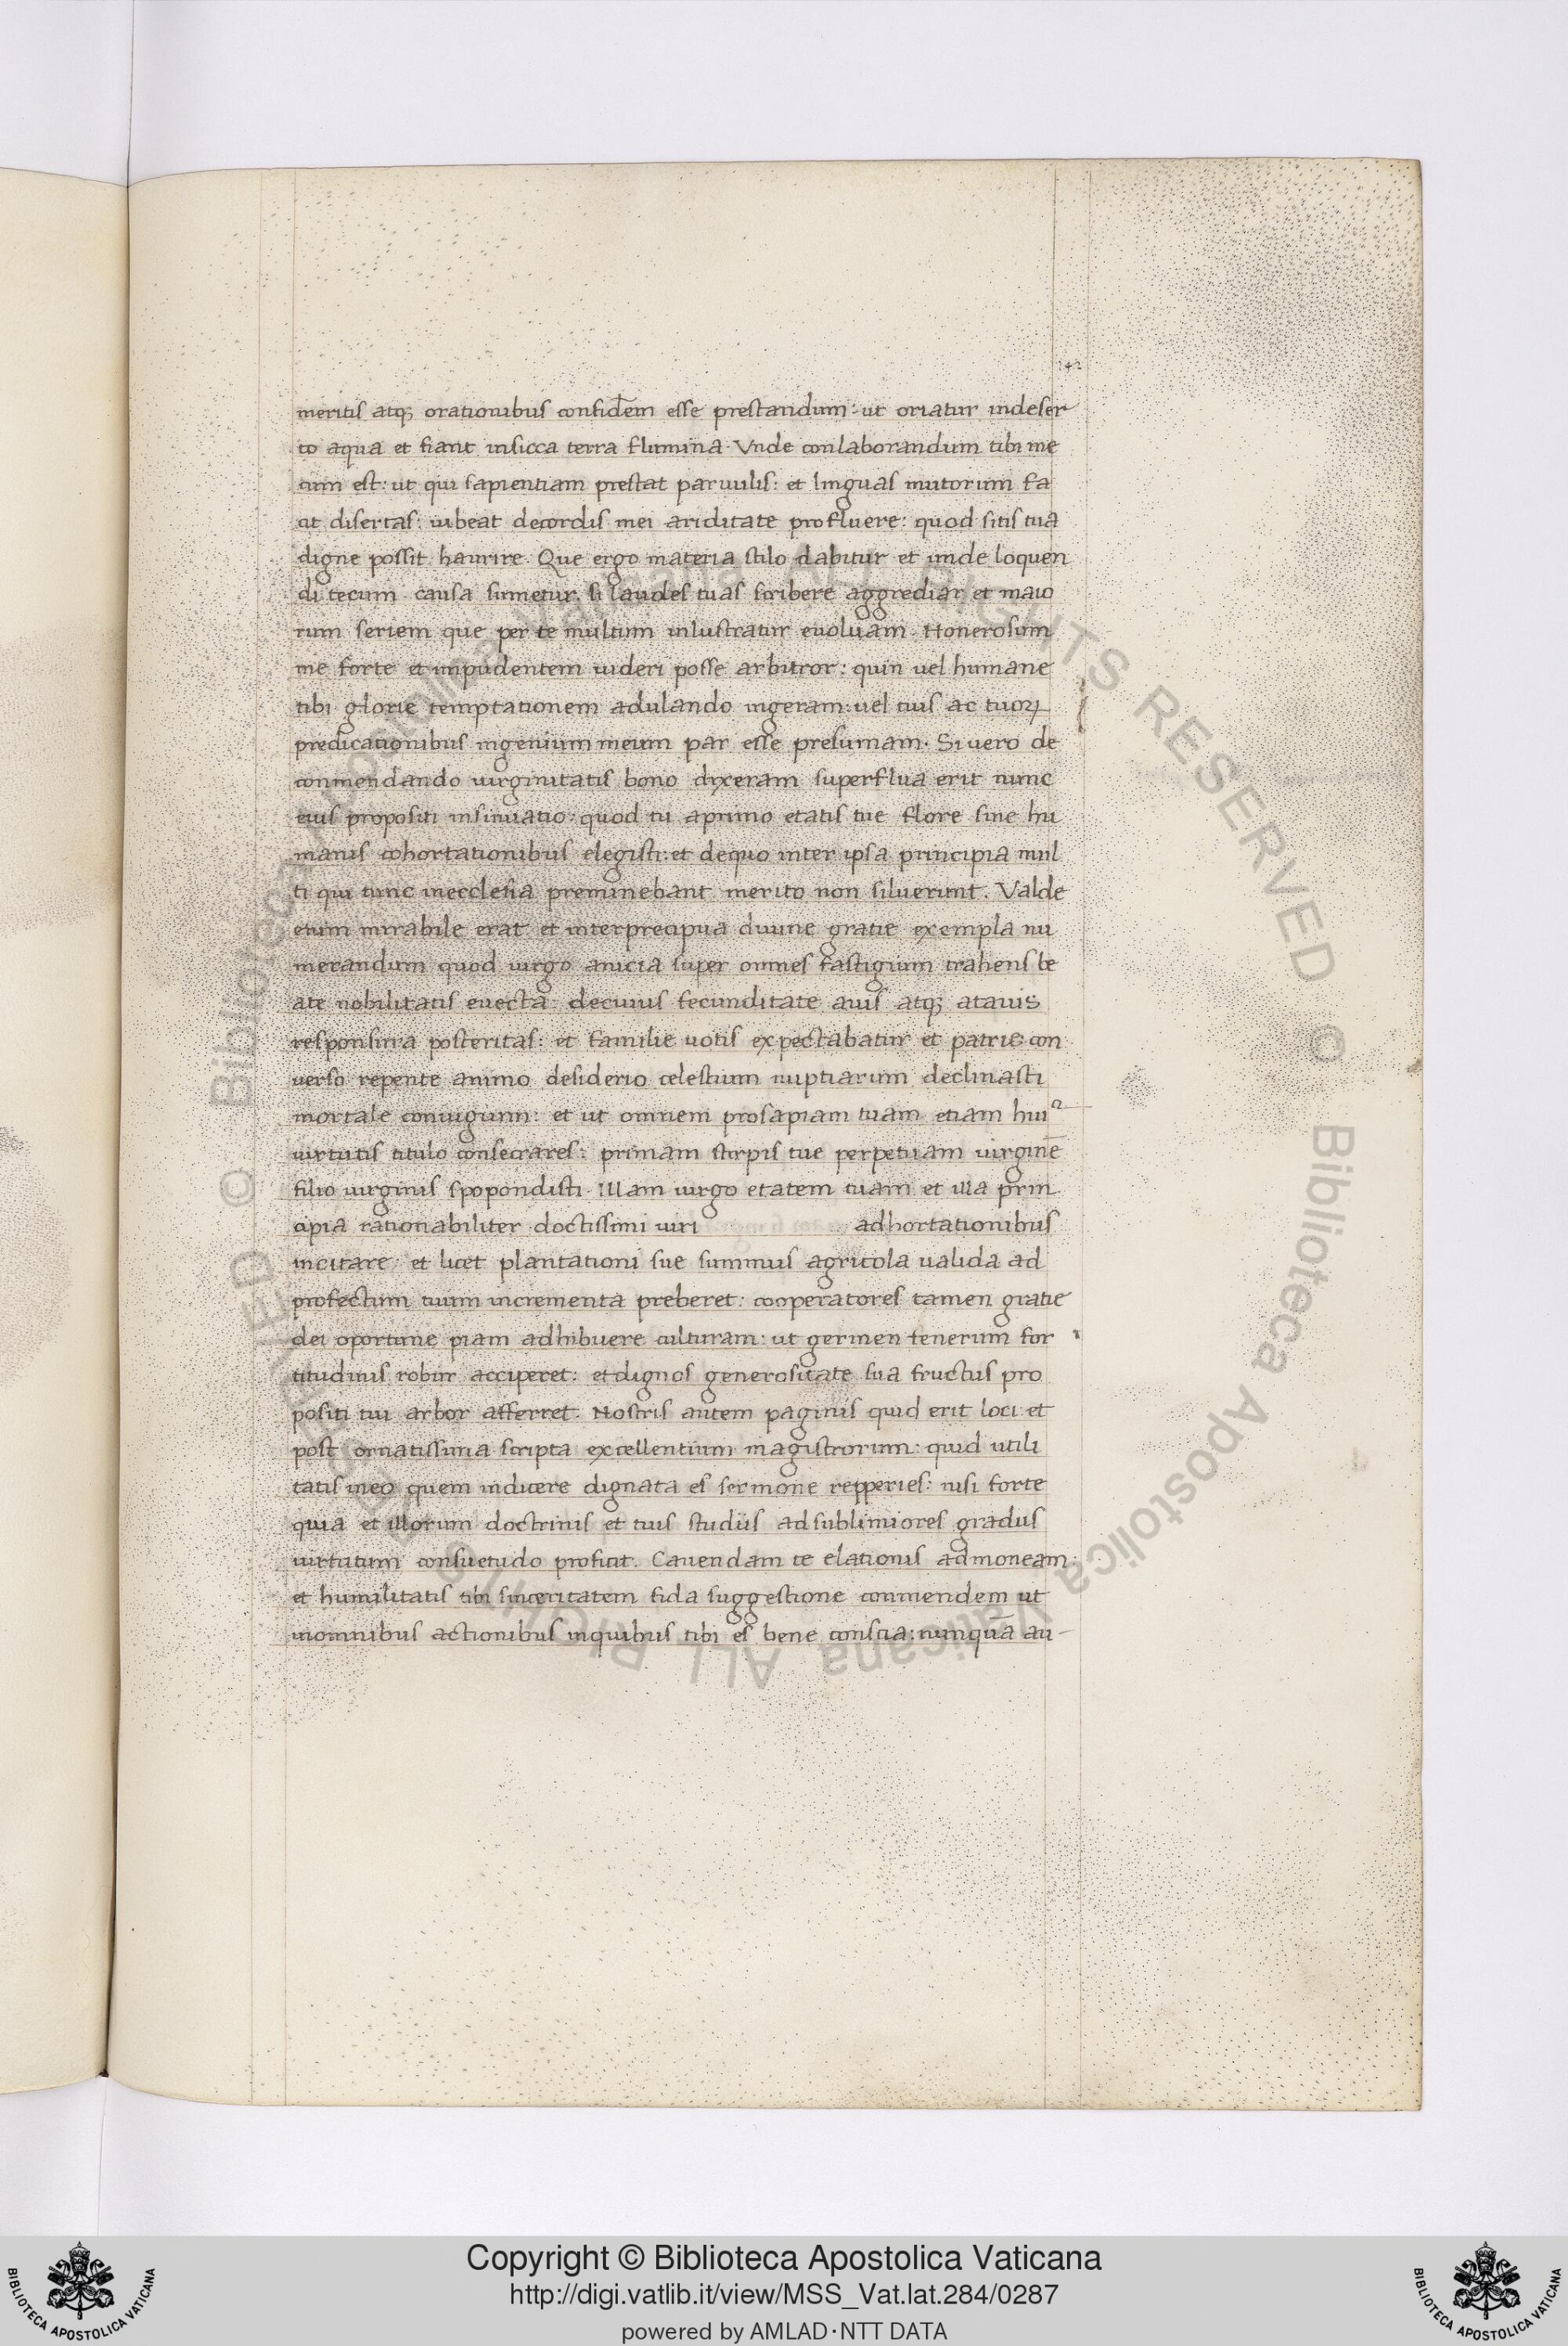 meritis atq; orationibus confidem esse prestandum: ut oriatur indeser
to aqua et fiant insicca terra flumina. Vnde conlaborandum tibi me
cum est: ut qui sapientiam prestat paruulis: et linguas mutorum fa
cit disertas: iubeat decordis mei ariditate profluere: quod sitis tua
digne possit haurire. Que ergo materia stilo dabitur et unde loquen
di tecum causa sumetur. si laudes tuas scribere aggrediar et maio
rum seriem que per te multum inlustratur euoluam. Honerosum
me forte et impudentem uideri posse arbitror: quin uel humane
tibi glorie temptationem adulando ingeram: uel tuis ac tuoꝝ
predicationibus ingenium meum par esse presumam. Si uero de
conmendando uirginitatis bono dixeram superflua erit nunc
eius propositi insinuatio: quod tu aprimo etatis tue flore sine hu
manis cohortationibus elegisti: et dequo inter ipsa principia mul
ti qui tunc inecclesia preminebant merito non siluerunt. Valde
etum mirabile erat et interprecipua diuine gratie exempla nu
merandum quod uirgo anicia super omnes fastigium trahens be
ate nobilitatis euecta: decuius fecunditate auis atq; atauis
responsura posteritas: et familie uotis expectabatur et patrie: con
uerso repente animo desiderio celestium nuptiarum declinasti
mortale coniugium: et ut omnem prosapiam tuam etiam huiꝰ
uirtutis titulo consecrares: primam stirpis tue perpetuam uirginē
filio uirginis spopondisti. Illam uirgo etatem tuam et illa prin
cipia rationabiliter doctissimi uiri adhortationibus
incitare: et licet plantationi sue summus agricola ualida ad
profectum tuum incrementa preberet: cooperatores tamen gratie
dei oportune piam adhibuere culturam: ut germen tenerum for
titudinis robur acciperet: et dignos generositate sua fructus pro
positi tui arbor afferret. Nostris autem paginis quid erit loci et
post ornatissima scripta excellentium magistrorum: quid utili
tatis meo quem indicere dignata es sermone repperies: nisi forte
quia et illorum doctrinis et tuis studiis adsublimiores gradus
uirtutum consuetudo proficit. Cauendam te elationis admoneam:
et humilitatis tibi sinceritatem fida suggestione conmendem ut
inomnibus actionibus inquibus tibi es bene conscia: nunquā au
© Biblioteca Apostolica Vaticana ALL RIGHTS RESERVED © Biblioteca Apostolica Vaticana ALL RIGHTS RESERVED
Copyright © Biblioteca Apostolica Vaticana
http://digi.vatlib.it/view/MSS_Vat.lat.284/0287
powered by AMLAD·NTT DATA
BIBLIOTECA APOSTOLICA VATICANA
BIBLIOTECA APOSTOLICA VATICANA